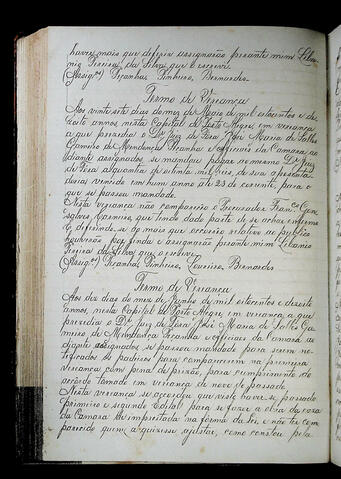 haver mais que deferir assignarão presente mim
Pereira da Silva que o escrevi
(Assigos) Peçanha, Pinheiro, Bernardes.
Termo de Vereança
Aos vinte sete dias do mez de Maio de mil oitocentos e de-
zoito annos, nesta Capital de Porto Alegre, em vereança
a que presedio o Dr. Juiz de Fora José Maria de Salles
Gameiro de Mendonça Peçanha e officiaes da Camara ao
diante assignados, se mandou pagar ao mesmo Dr. Juiz
de Fora a quantia de oitenta mil reis, de sua aposenta-
doria vencido em hum anno até 23 do corrente, para o
que se passou mandado.
Nesta vereança não compareceo o Procurador Franco Gon-
salves Carneiro, que tendo dado parte de se achar enfermo
E deferindo-se ao mais que occorreo relativo ao publico
houverão por finda e assignarão presente mim Libanio
Pereira da Silva que o escrevi
(Assigos) Peçanha, Pinheiro, Loureiro, Bernardes
Termo de Vereança
Aos dez dias do mez de Junho de mil oitocentos e dezoito
annos, nesta Capital de Porto Alegre, em vereança, a que
presedio o Dr. Juiz de Fora José Maria de Salles Ga-
meiro de Mendonça Peçanha e officiaes da Camara ao
diante assignados, se passou mandado para serem no-
tificados os padeiros para comparecerem na primeira
vereança com pena de prizão, para cumprimento do
acordo tomado em vereança de nove do passado.
Nesta vereança se accordou que visto haver se passado
primeiro e segundo Edital para se fazer a obra da caza
da Camara de empreitada na forma da Lei, e não ter com-
parecido quem a quizesse ajustar, como constou pela